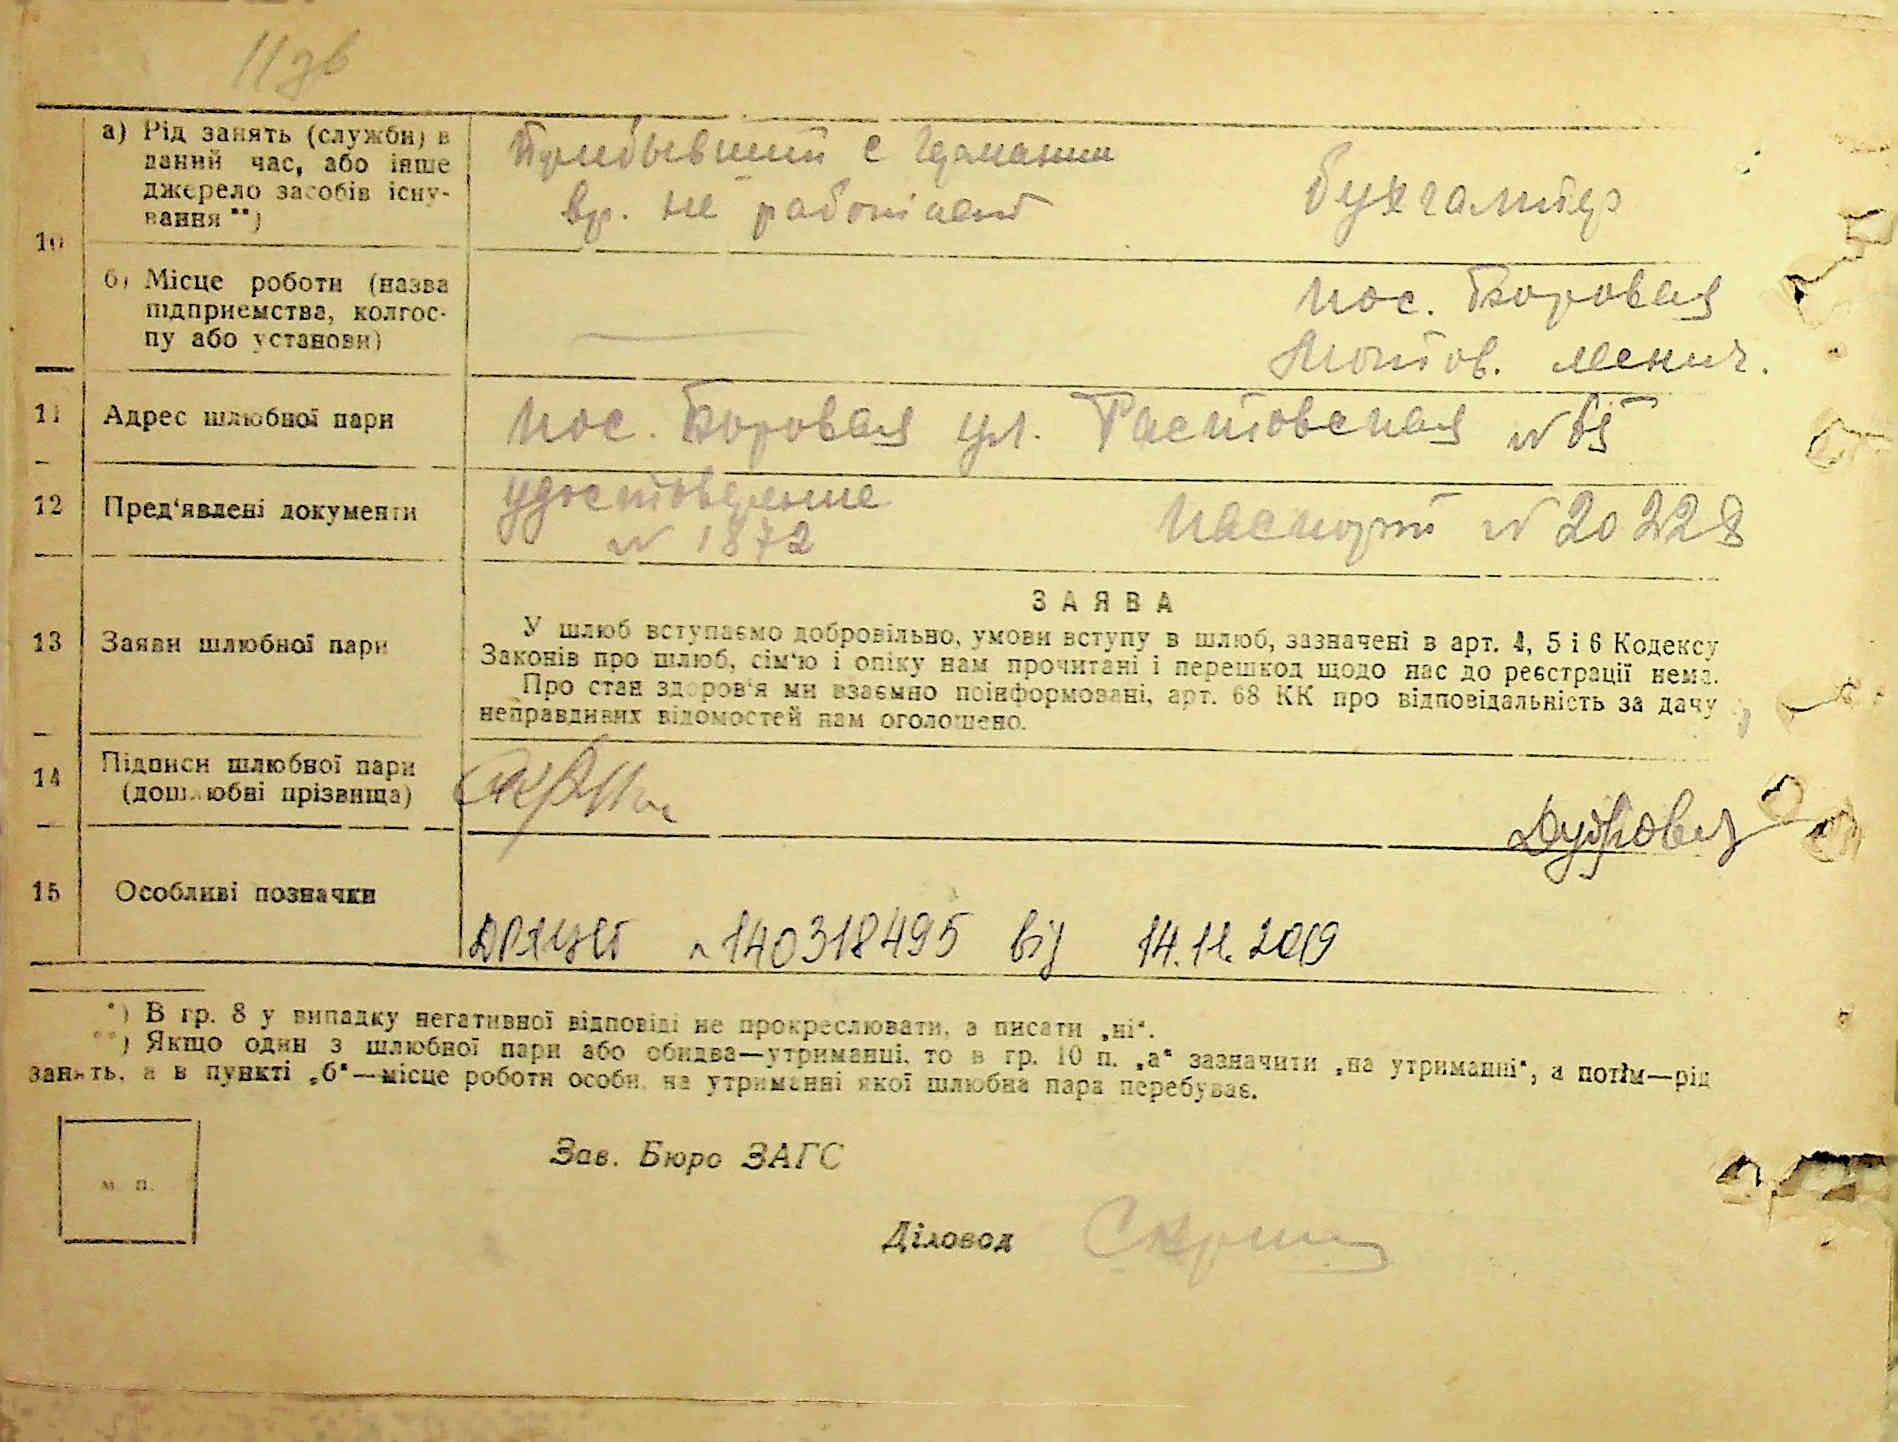 11 зв
10 а) Рід занять (служби) в даний час, або інше джерело засобів існування **)
Прибывший с Германии
вр. не работает
бухгалтер
б) Місце роботи (назва підприємства, колгоспу або установи)
пос. Боровая
11 Адрес шлюбної пари
пос. Боровая ул. Растовская №
12 Пред'явлені документи
удостоверение
№ 1872
паспорт № 20228
13 Заяви шлюбної пари
ЗАЯВА
У шлюб вступаємо добровільно, умови вступу в шлюб, зазначені в арт. 4, 5 і 6 Кодексу
Законів про шлюб, сім'ю і опіку нам прочитані і перешкод щодо нас до реєстрації нема.
Про стан здоров'я ми взаємно поінформовані, арт. 68 КК про відповідальність за дачу
неправдивих відомостей нам оголошено.
14 Підписи шлюбної пари
(дошлюбні прізвища)
15 Особливі позначки
№ 140318495 від 14.11.2019
*) В гр. 8 у випадку негативної відповіді не прокреслювати, а писати „ні“.
**) Якщо один з шлюбної пари або обидва—утриманці, то в гр. 10 п. „а“ зазначити „на утриманні“, а потім—рід
занять, а в пункті „б“—місце роботи особи, на утриманні якої шлюбна пара перебуває.
м. п.
Зав. Бюро ЗАГС
Діловод